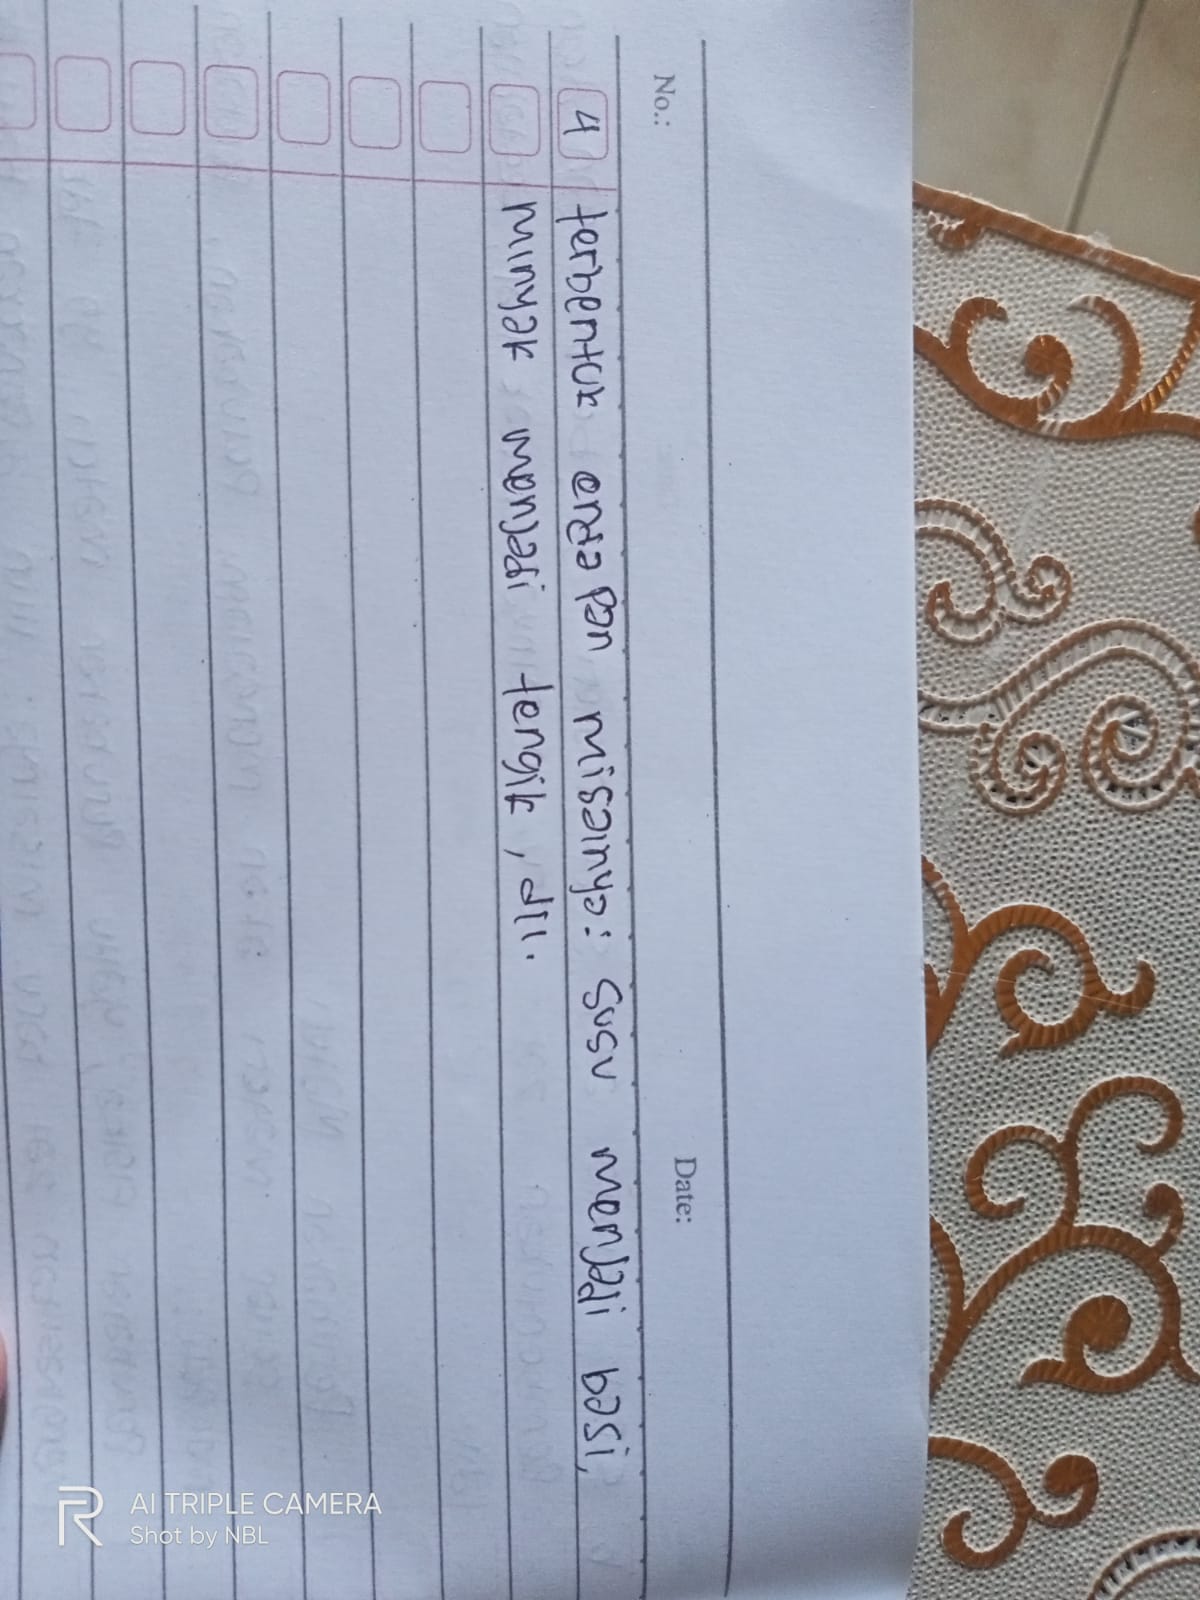 No.: Date:
4 terbentuk area pan misalnya : Susu menjadi basi,
minyak menjadi tengik, dll.
AI TRIPLE CAMERA
Shot by NBL